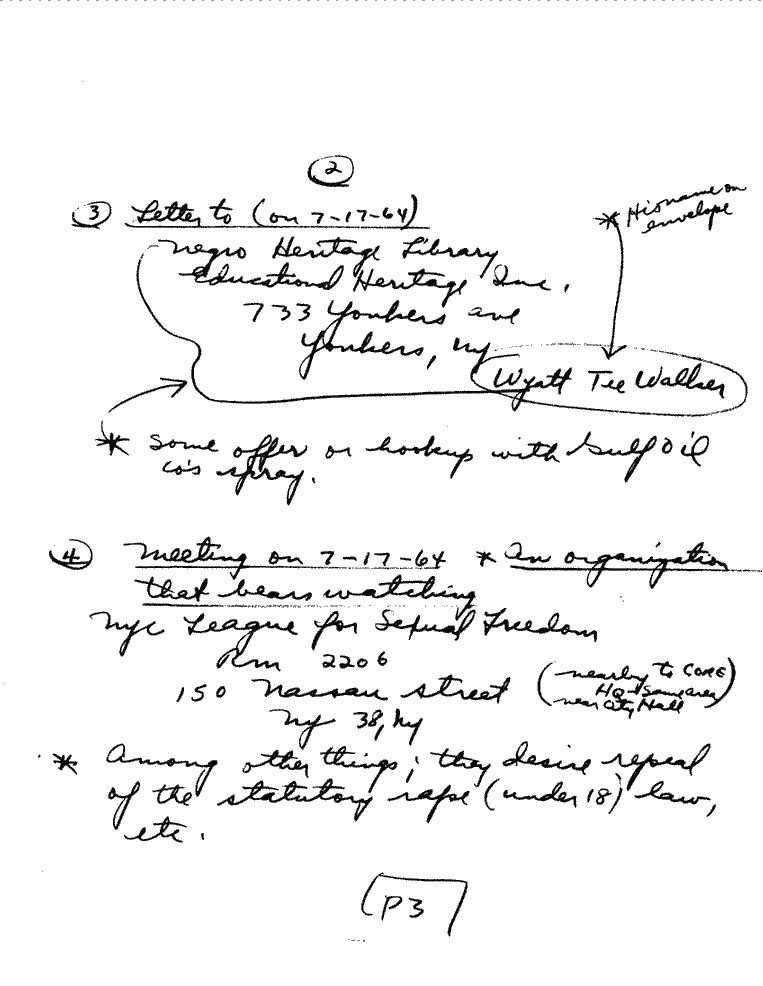 2
3 Letter to (on 7-17-64)
* His name on
envelope
Negro Heritage Library
Educational Heritage Inc.
733 Yonkers ave
Yonkers, Ny
Wyatt Tee Walker
* Some offer or hookup with Gulf Oil
co's spray.
4 Meeting on 7-17-64 * An organization
that bears watching
Nyc League for Sexual Freedom
Rm 2206
150 Nassau street
(nearby to CORE
HQ - Same area
near City Hall)
Ny 38, Ny
* Among other things; they desire repeal
of the statutory rape (under 18) law,
etc.
P3